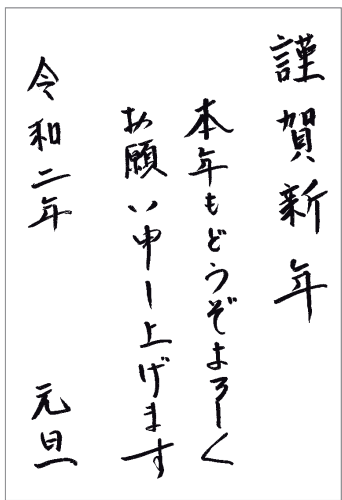 謹賀新年
本年もどうぞよろしく
お願い申し上げます
令和二年 元旦